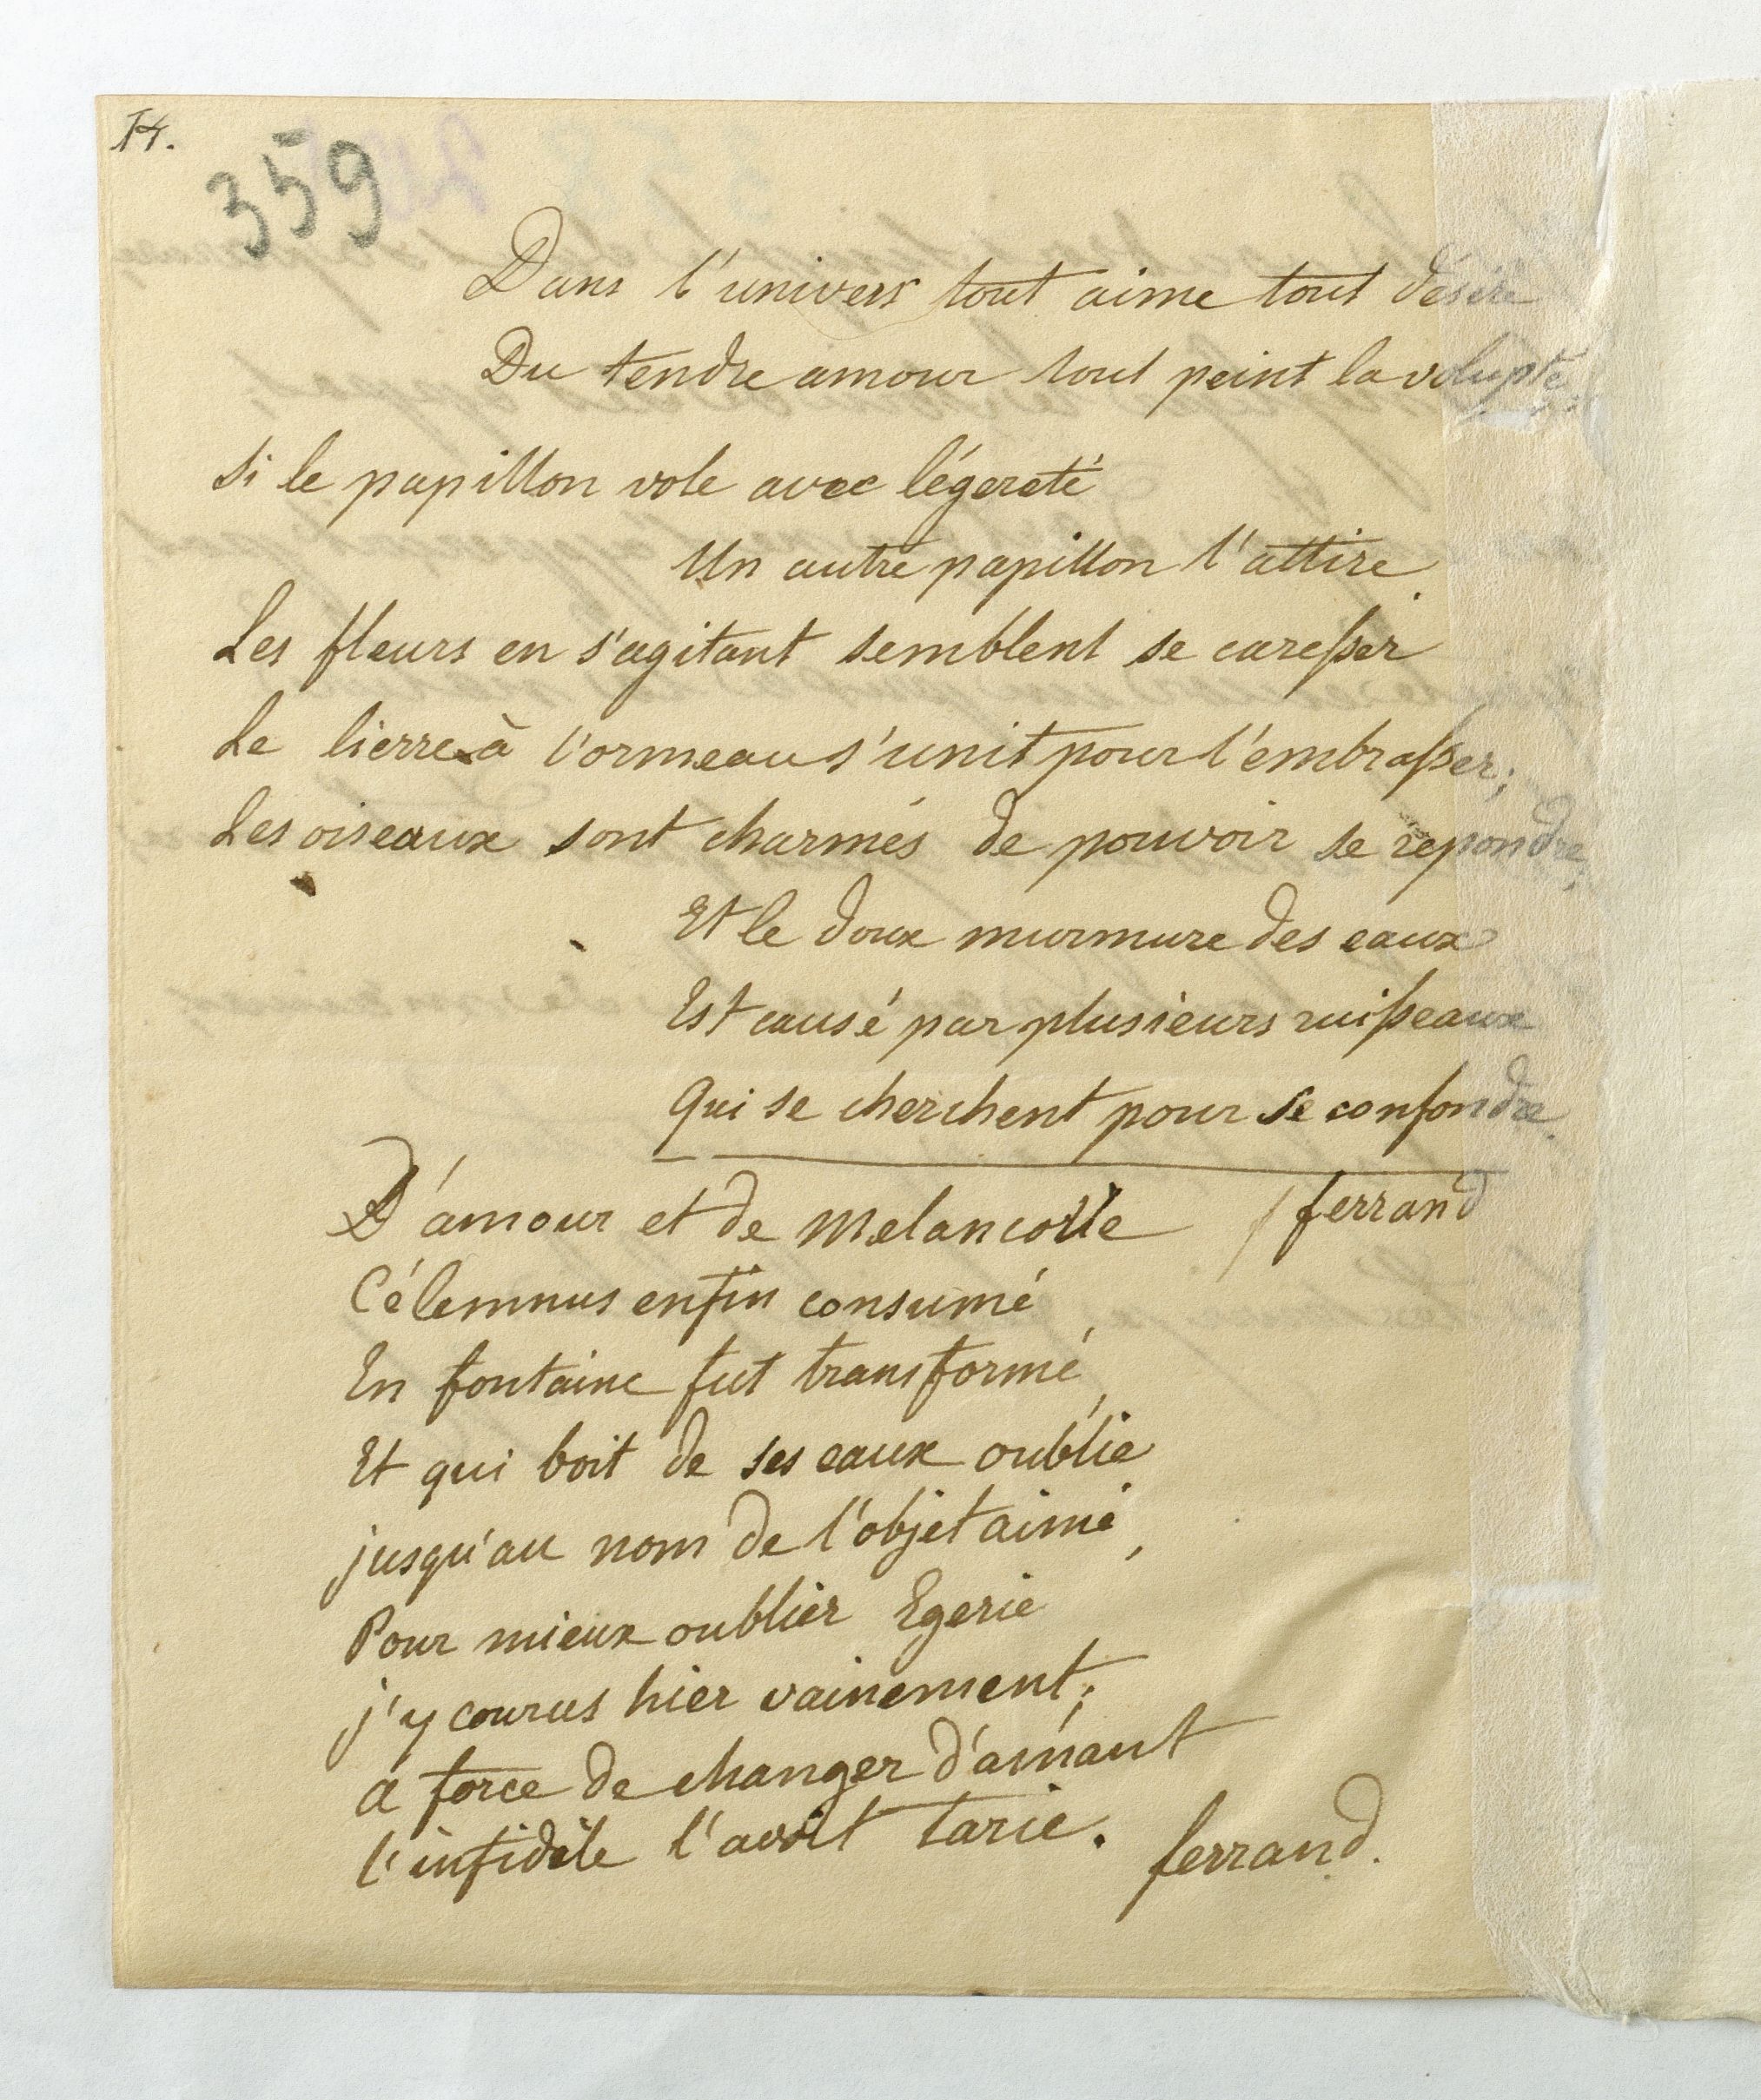 14.
359
Dans l'univers tout aime tout désire
Du tendre amour tout peint la volupté.
Si le papillon vole avec légereté
Un autre papillon l'attire.
Les fleurs en s'agitant semblent se caresser
Le lierre à l'ormeau s'unit pour l'embrasser;
Les oiseaux sont charmés de pouvoir se repondre,
Et le doux murmure des eaux
Est causé par plusieurs ruisseaux
Qui se cherchent pour se confondre.
D'amour et de melancolie / ferrand
Célemnus enfin consumé
En fontaine fut transformé,
Et qui boit de ses eaux oublie
jusqu'au nom de l'objet aimé,
Pour mieux oublier Egerie
j'y courus hier vainement;
a force de changer d'amant
l'infidèle l'avoit tarie. ferrand.